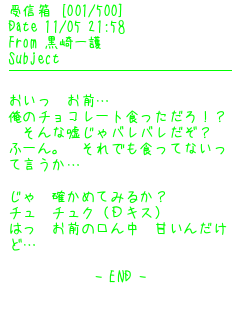 受信箱 [001/500]
Date 11/05 21:58
From 黒崎一護
Subject
おいっ　お前…
俺のチョコレート食っただろ！？
　そんな嘘じゃバレバレだぞ？
ふーん。　それでも食ってないっ
て言うか…
じゃ　確かめてみるか？
チュ　チュク（Dキス）
はっ　お前の口ん中　甘いんだけ
ど…
~ END ~